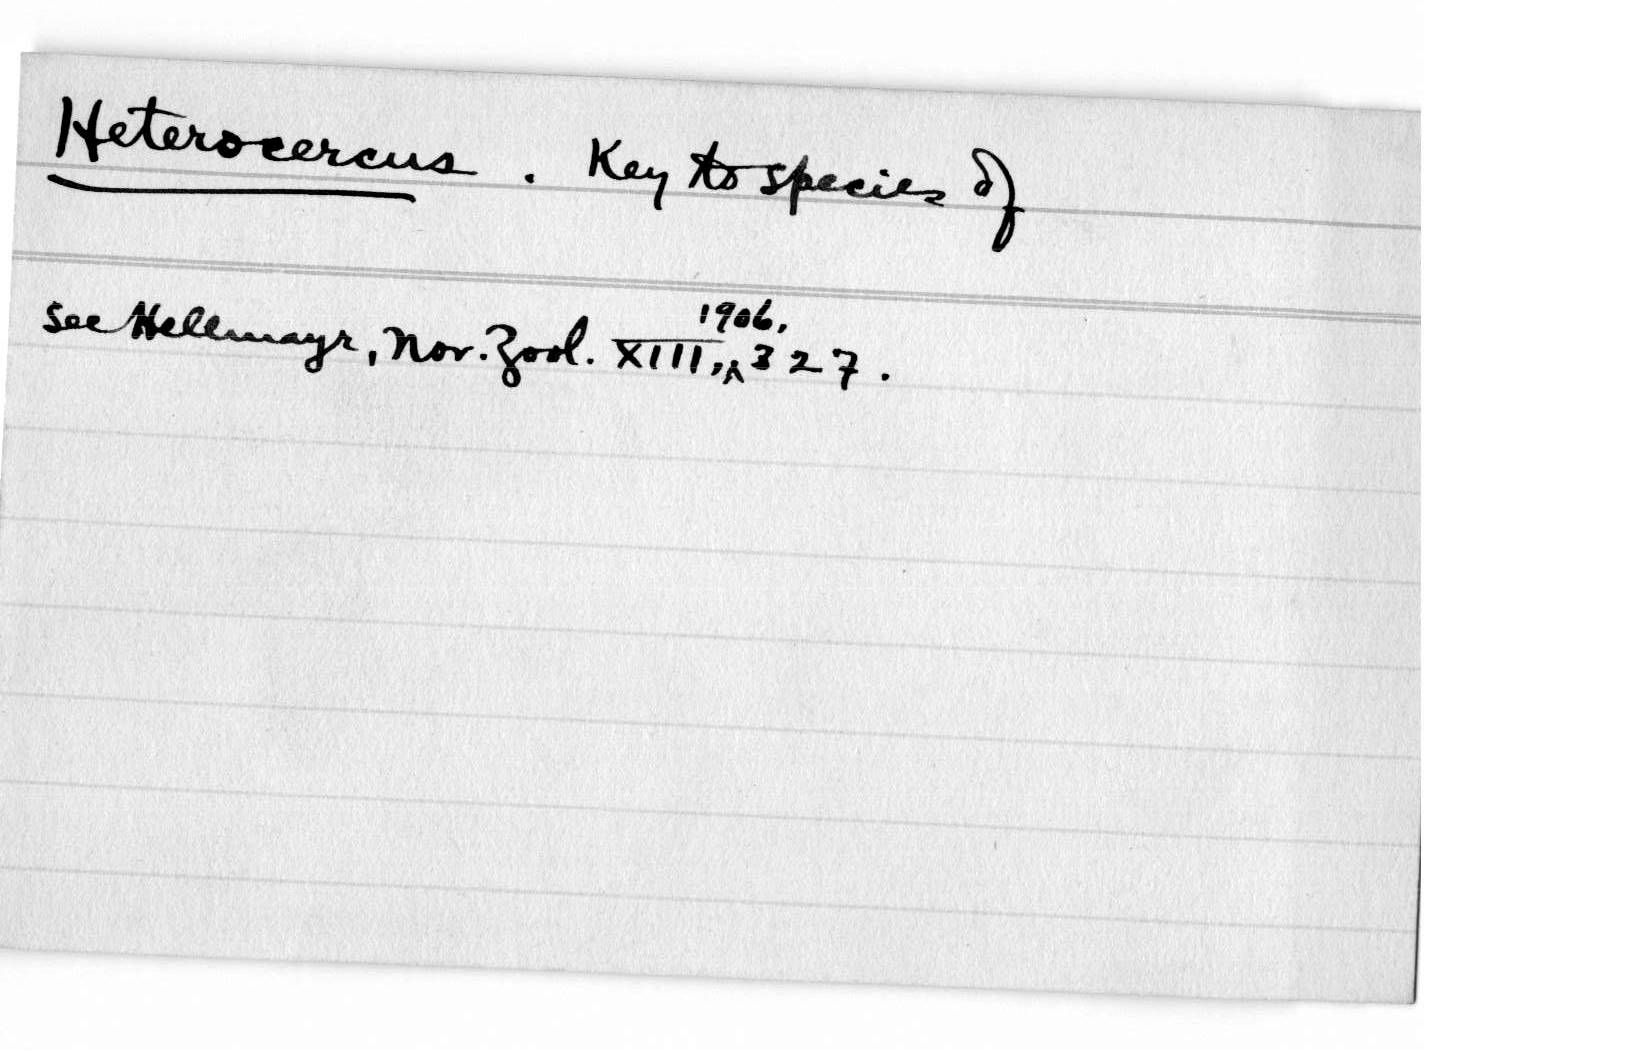 Heterocercus. Key to species of
see Hellmayr, Nov. Zool. XIII, 1906, 327.